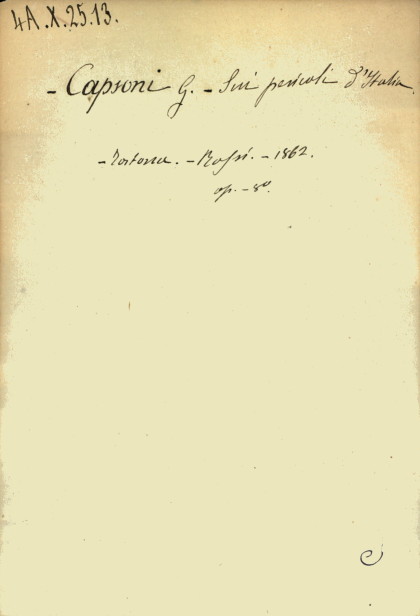 4A.X.25.13.
- Capsoni G. - Sui pericoli d'Italia.
- Tortona. - Rossi. - 1862.
op. - 8º.